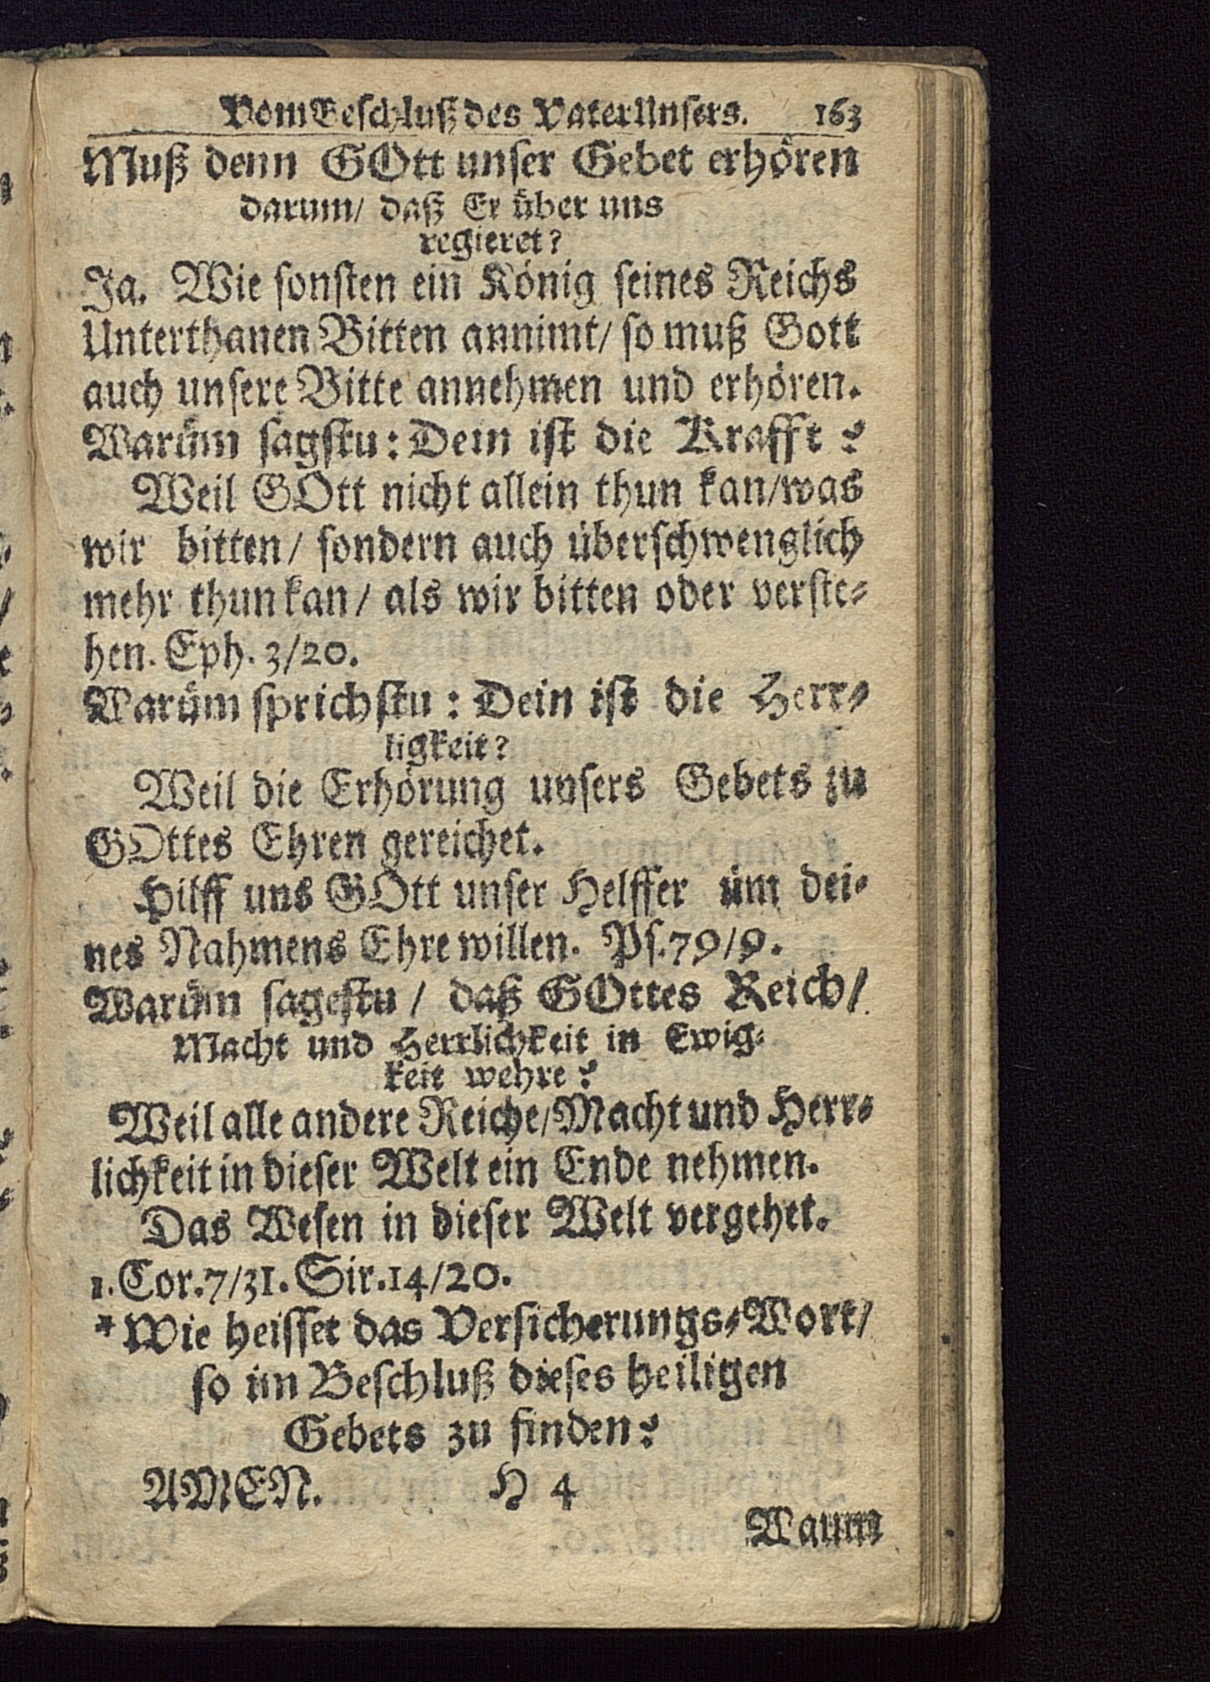 Vom Beschluß des Vater Unsers. 163
Muß denn GOtt unser Gebet erhören
darum/ daß Er über uns
regieret?
Ja. Wie sonsten ein König seines Reichs
Unterthanen Bitten annimt/ so muß Gott
auch unsere Bitte annehmen und erhören.
Warüm sagstu: Dein ist die Krafft?
Weil GOtt nicht allein thun kan/was
wir bitten/ sondern auch überschwenglich
mehr thun kan/ als wir bitten oder verste-
hen. Eph. 3/20.
Warüm sprichstu: Dein ist die Herr-
ligkeit?
Weil die Erhörung unsers Gebets zu
GOttes Ehren gereichet.
Hilff uns GOtt unser Helffer üm dei-
nes Nahmens Ehre willen. Ps. 79/9.
Warüm sagestu/ daß GOttes Reich/
Macht und Herrlichkeit in Ewig-
keit wehre?
Weil alle andere Reiche/Macht und Herr-
lichkeit in dieser Welt ein Ende nehmen.
Das Wesen in dieser Welt vergehet.
1. Cor. 7/31. Sir. 14/20.
* Wie heisset das Versicherungs-Wort/
so im Beschluß dieses heiligen
Gebets zu finden?
AMEN. H 4
Waum